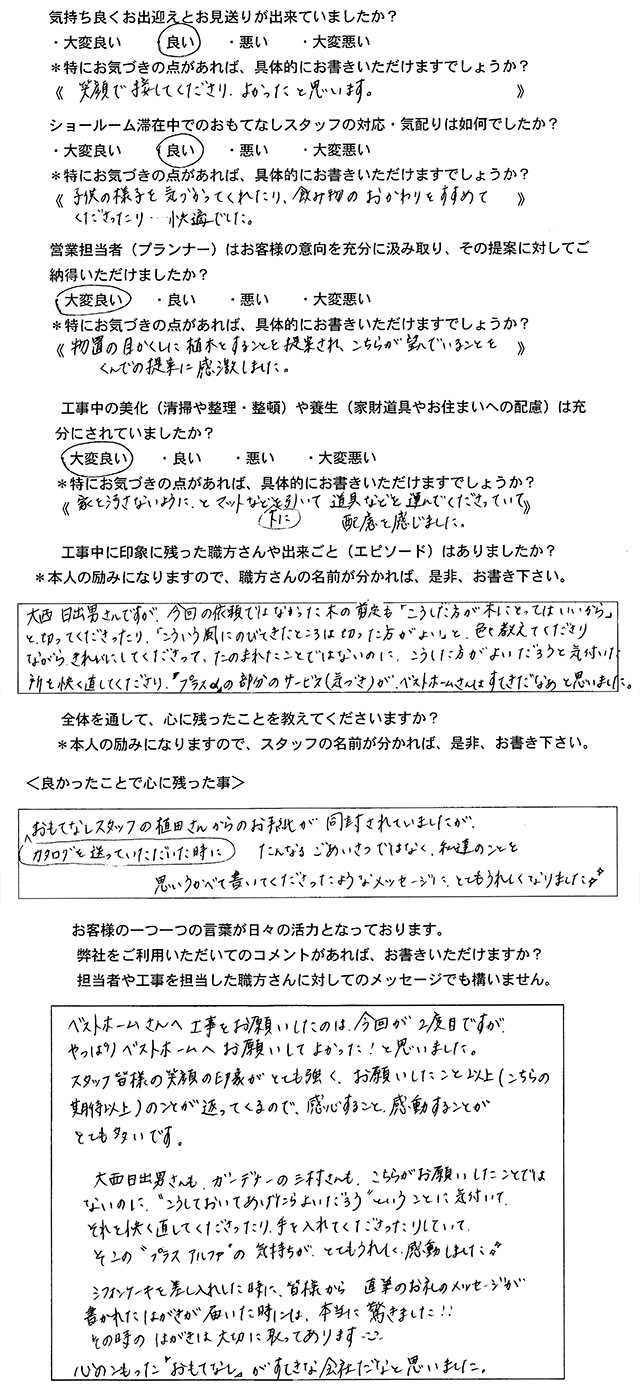 気持ち良くお出迎えとお見送りが出来ていましたか？
・大変良い　・良い　・悪い　・大変悪い
＊特にお気づきの点があれば、具体的にお書きいただけますでしょうか？
《 笑顔で接してくださり、よかったと思います。 》
ショールーム滞在中でのおもてなしスタッフの対応・気配りは如何でしたか？
・大変良い　・良い　・悪い　・大変悪い
＊特にお気づきの点があれば、具体的にお書きいただけますでしょうか？
《 子供の様子を気づかってくれたり、飲み物のおかわりをすすめて 》
くださったり…快適でした。
営業担当者（プランナー）はお客様の意向を充分に汲み取り、その提案に対してご
納得いただけましたか？
・大変良い　・良い　・悪い　・大変悪い
＊特にお気づきの点があれば、具体的にお書きいただけますでしょうか？
《 物置の目かくしに植木をすることを提案され、こちらが望んでいることを 》
くんでの提案に感激しました。
工事中の美化（清掃や整理・整頓）や養生（家財道具やお住まいへの配慮）は充
分にされていましたか？
・大変良い　・良い　・悪い　・大変悪い
＊特にお気づきの点があれば、具体的にお書きいただけますでしょうか？
《 家を汚さないように、とマットなどを引いて 道具などを運んでくださっていて 》
下に　配慮を感じました。
工事中に印象に残った職方さんや出来ごと（エピソード）はありましたか？
＊本人の励みになりますので、職方さんの名前が分かれば、是非、お書き下さい。
大西日出男さんですが、今回の依頼ではなかった木の剪定も「こうした方が木にとってはいいから」
と切ってくださったり、「こういう風にのびてきたところは切った方がよい」と、色々教えてくださり
ながら、きれいにしてくださって、たのまれたことではないのに、こうした方がよいだろうと気付いた
所を快く直してくださり、"プラスα"の部分のサービス（気づき）が、ベストホームさんはすてきだなぁと思いました。
全体を通して、心に残ったことを教えてくださいますか？
＊本人の励みになりますので、スタッフの名前が分かれば、是非、お書き下さい。
＜良かったことで心に残った事＞
おもてなしスタッフの植田さんからのお手紙が 同封されていましたが、
カタログを送っていただいた時に　たんなるごあいさつではなく、私達のことを
思いうかべて書いてくださったようなメッセージに、とてもうれしくなりました
お客様の一つ一つの言葉が日々の活力となっております。
弊社をご利用いただいてのコメントがあれば、お書きいただけますか？
担当者や工事を担当した職方さんに対してのメッセージでも構いません。
ベストホームさんへ工事をお願いしたのは、今回が2度目ですが、
やっぱりベストホームへお願いしてよかった！と思いました。
スタッフ皆様の笑顔の印象がとても強く、お願いしたこと以上（こちらの
期待以上）のことが返ってくるので、感心すること、感動することが
とても多いです。
大西日出男さんも、ガーデナーの三村さんも、こちらがお願いしたことでは
ないのに、"こうしておいてあげたらよいだろう"ということに気付いて、
それを快く直してくださったり、手を入れてくださったりしていて、
そこの"プラスアルファ"の気持ちが、とてもうれしく、感動しました
シフォンケーキを差し入れした時に、皆様から 直筆のお礼のメッセージが
書かれたはがきが届いた時には、本当に驚きました！！
その時のはがきは大切に取ってあります
心のこもった"おもてなし"がすてきな会社だなと思いました。